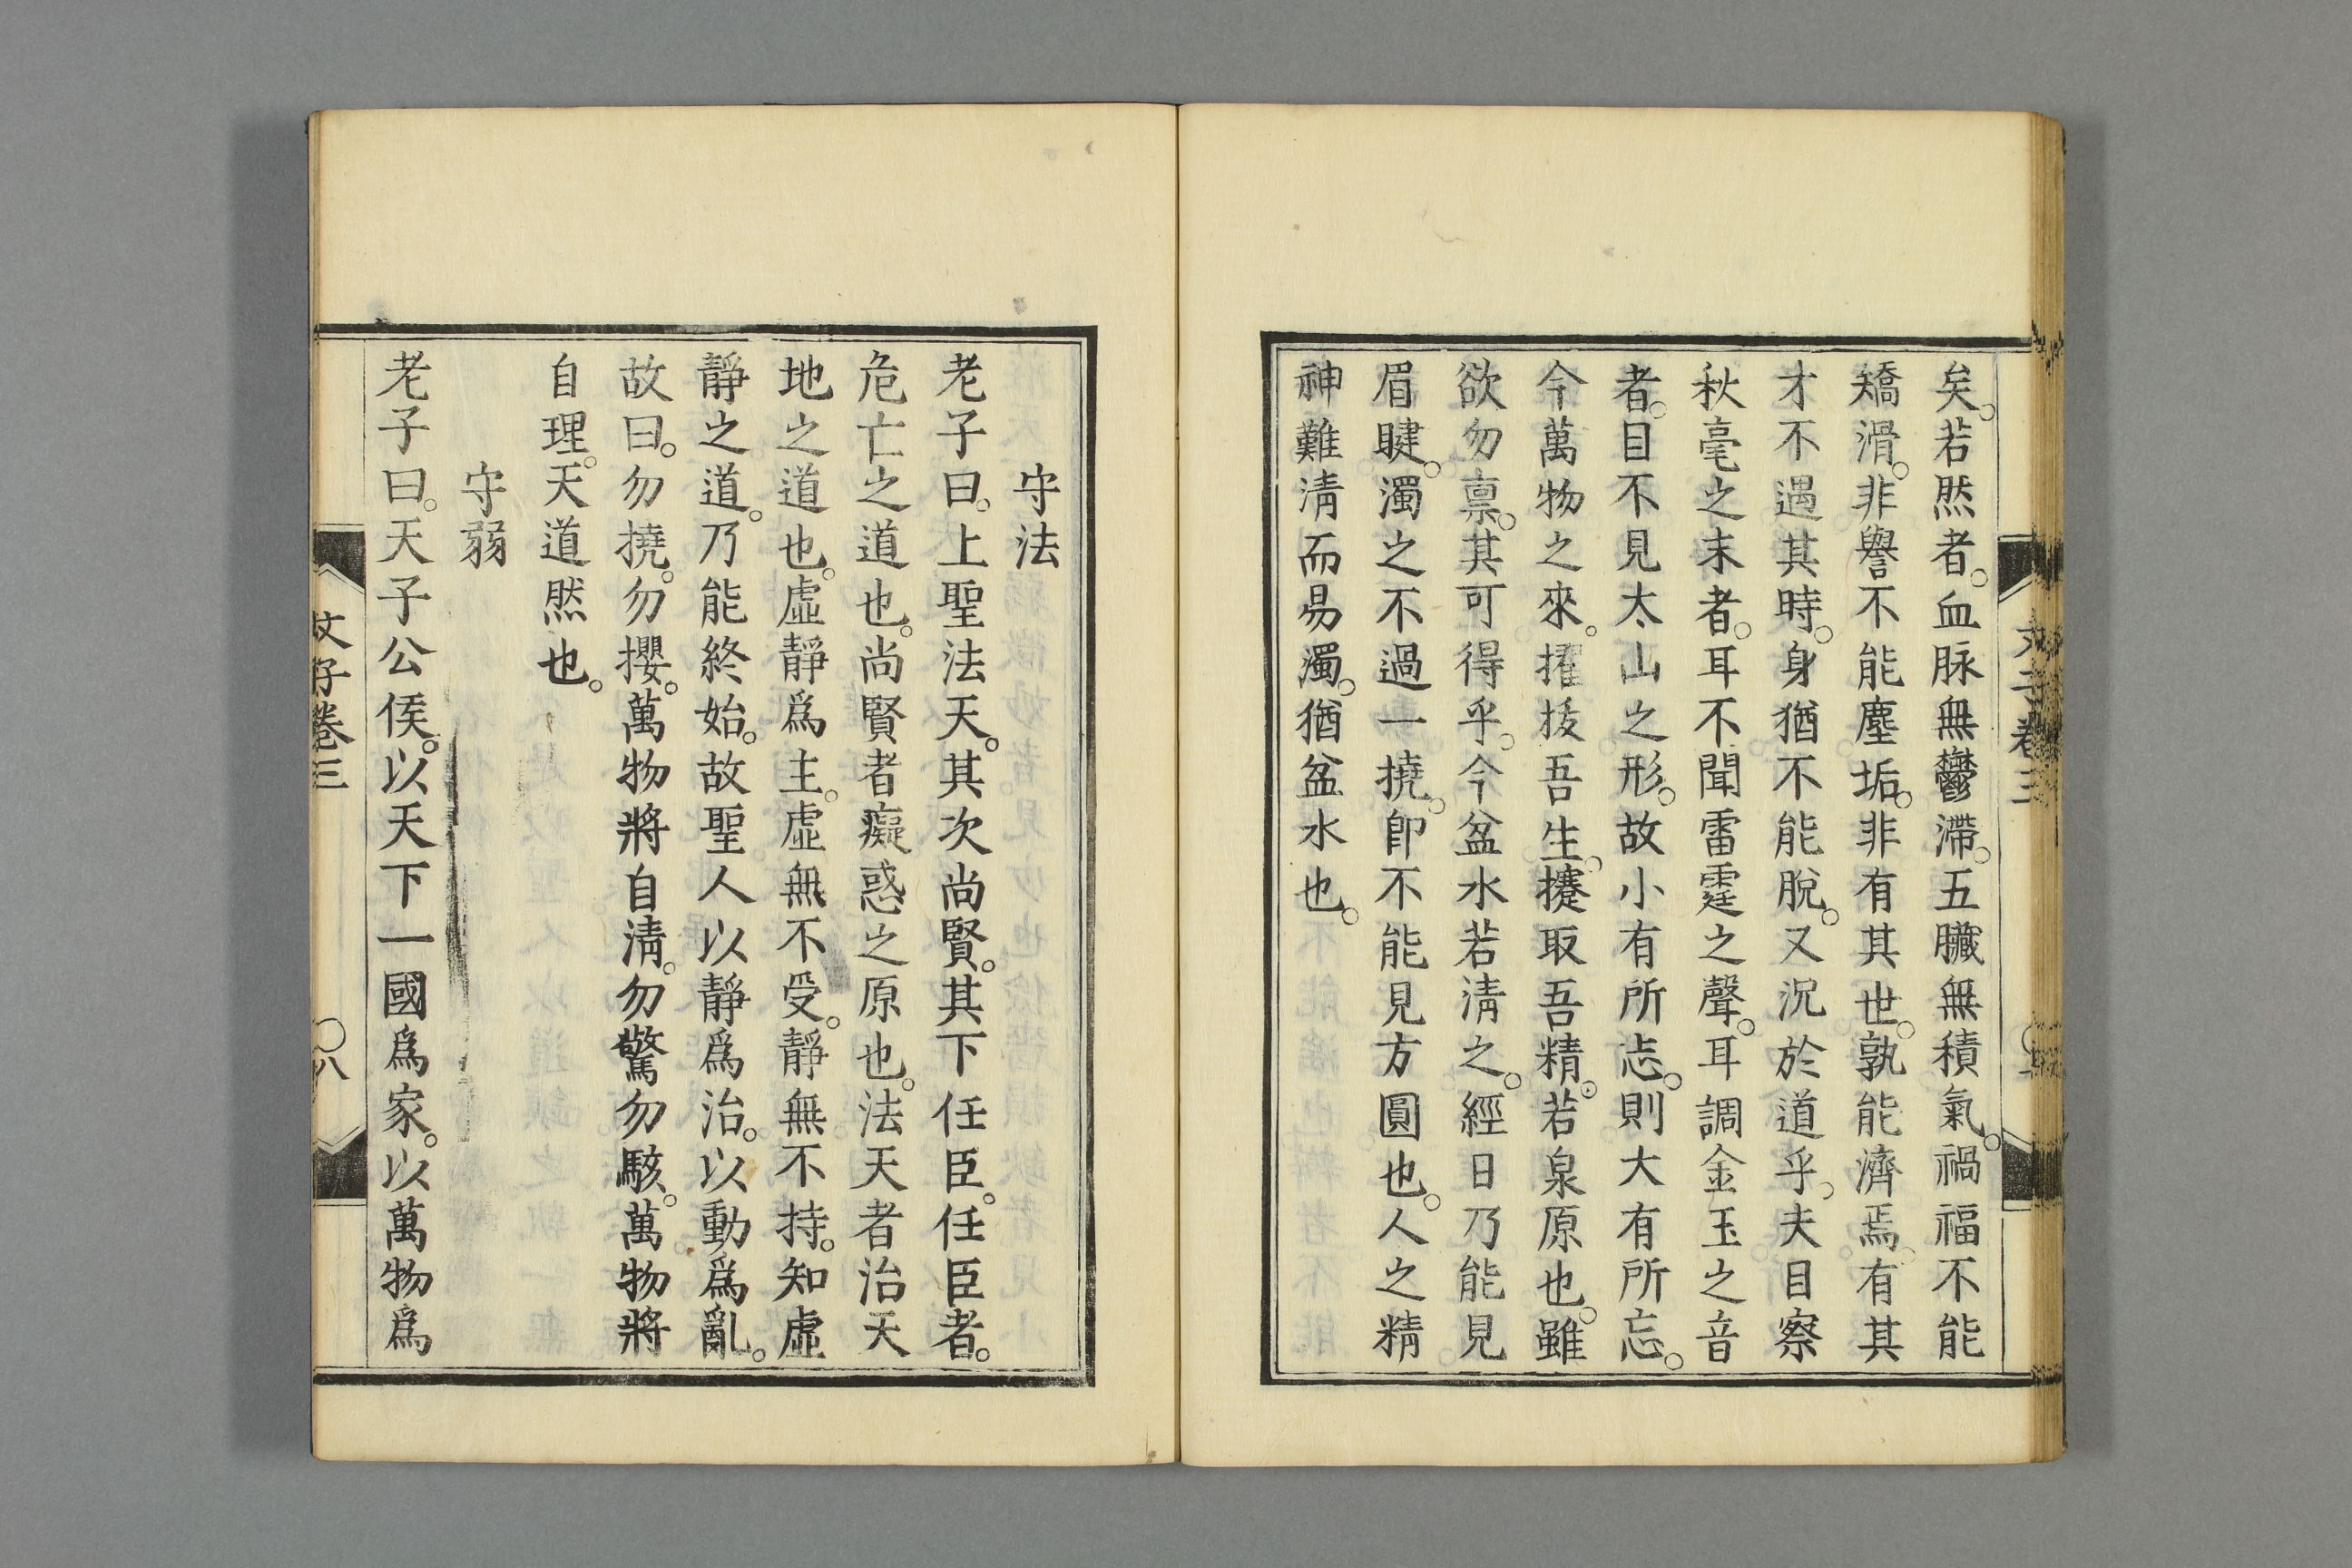 矣。若然者。血脉無鬱滯。五臟無積氣。禍福不能
矯滑。非譽不能塵垢。非有其世。孰能濟焉。有其
才不遇其時。身猶不能脫。又沉於道乎。夫目察
秋毫之末者。耳不聞雷霆之聲。耳調金玉之音
者。目不見太山之形。故小有所志。則大有所忘。
今萬物之來。擢拔吾生。攓取吾精。若泉原也。雖
欲勿稟。其可得乎。今盆水若淸之。經日乃能見
眉睫。濁之不過一撓。卽不能見方圓也。人之精
神難淸而易濁。猶盆水也。
守法
老子曰。上聖法天。其次尚賢。其下任臣。任臣者。
危亡之道也。尚賢者癡惑之原也。法天者治天
地之道也。虛靜爲主。虛無不受。靜無不持。知虛
靜之道。乃能終始。故聖人以靜爲治。以動爲亂。
故曰。勿撓。勿攖。萬物將自淸。勿驚勿駭。萬物將
自理。天道然也。
守弱
老子曰。天子公侯。以天下一國爲家。以萬物爲
文子卷三
〇八
文子卷三